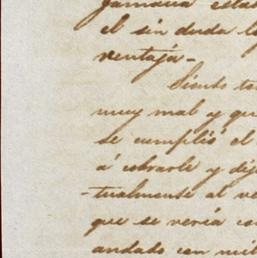 Jamaica esta
el sin duda l
ventaja-
Siendo ta
muy mal y qu
se cumplió el
á cobrarle y dij
-tualmente al ve
que se vería co
andado con mil